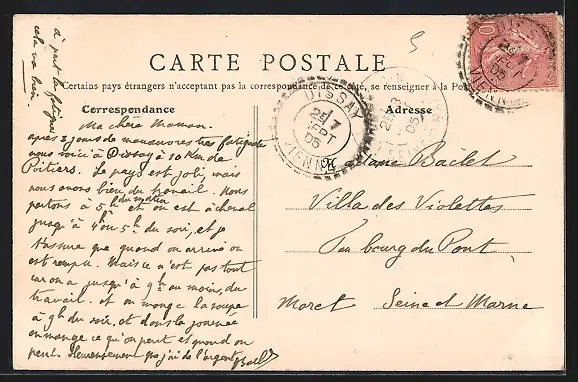 CARTE POSTALE
Certains pays étrangers n'acceptant pas la correspondance de ce côté, se renseigner à la Pos
Correspondance
Ma chère Maman.
après 3 jours de manœuvres tres fatigantes
nous voici à Dissay à 10 Km de
Poitiers. Le pays est joli, mais
nous avons bien du travail. Nous
partons à 5h du matin et on est à cheval
jusqu'à 4h ou 5h du soir, et je
t'assure que quand on arrive on
est rompu. Mais ce n'est pas tout
car on a jusqu'à 9h au moins, du
travail. et on mange la soupe
à 9h du soir. et dans la journée
on mange ce qu'on peut et quand on
peut. Heureusement que j'ai de l'argent
Bailet
à part la fatigue
cela va bien.
Adresse
Madame Bailet
Villa des Violettes
Faubourg du Pont
Moret Seine et Marne
DISSAY
25 7
SEPT
05
VIENNE
10
5